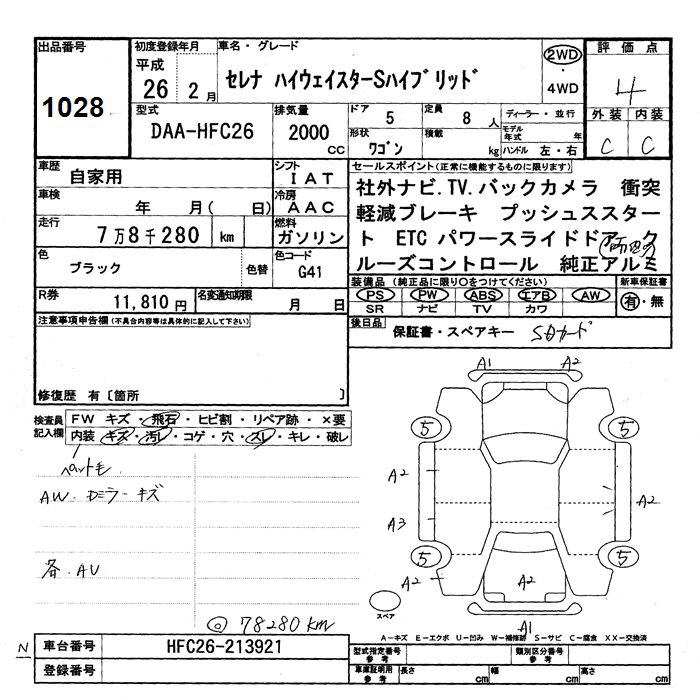 出品番号 初度登録年月 車名・グレード 評価点
平成 26 2月 セレナ ハイウェイスターSハイブリッド 2WD・4WD 4
1028
型式 排気量 ドア 5 定員 8人 ディーラー・並行 外装 内装
DAA-HFC26 2000cc 形状 ワゴン 積載 kg モデル年式 年 ハンドル 左・右 C C
車歴 自家用 シフト IAT セールスポイント(正常に機能するものに限ります)
車検 年 月( 日) 冷房 AAC
走行 7万8千280 km 燃料 ガソリン
社外ナビ.TV.バックカメラ 衝突
軽減ブレーキ プッシュススター
ト ETC パワースライドドア ク
ルーズコントロール 純正アルミ
色 ブラック 色替 色コード G41
装備品(純正品に限り○をつけてください) 新車保証書
PS PW ABS エアB AW 有・無
SR ナビ TV カワ
R券 11,810円 名変通知期限 月 日
後日品 保証書・スペアキー SDカード
注意事項申告欄(不具合内容等は具体的に記入して下さい)
修復歴 有〔箇所 〕
検査員記入欄 FW キズ・飛石・ヒビ割・リペア跡・×要
内装・キズ・汚レ・コゲ・穴・スレ・キレ・破レ
ペット毛
AW.Dミラーキズ
各.AU
◎ 78280km
A1 A2
5 5
A2 A2
A3
5 5
A2 A2
スペア A1
A-キズ E-エクボ U-凹み W-補修跡 S-サビ C-腐食 XX-交換済
N 車台番号 HFC26-213921 型式指定番号 参考 類別区分番号 参考
登録番号 車庫証明用 参考 長さ cm 幅 cm 高さ cm